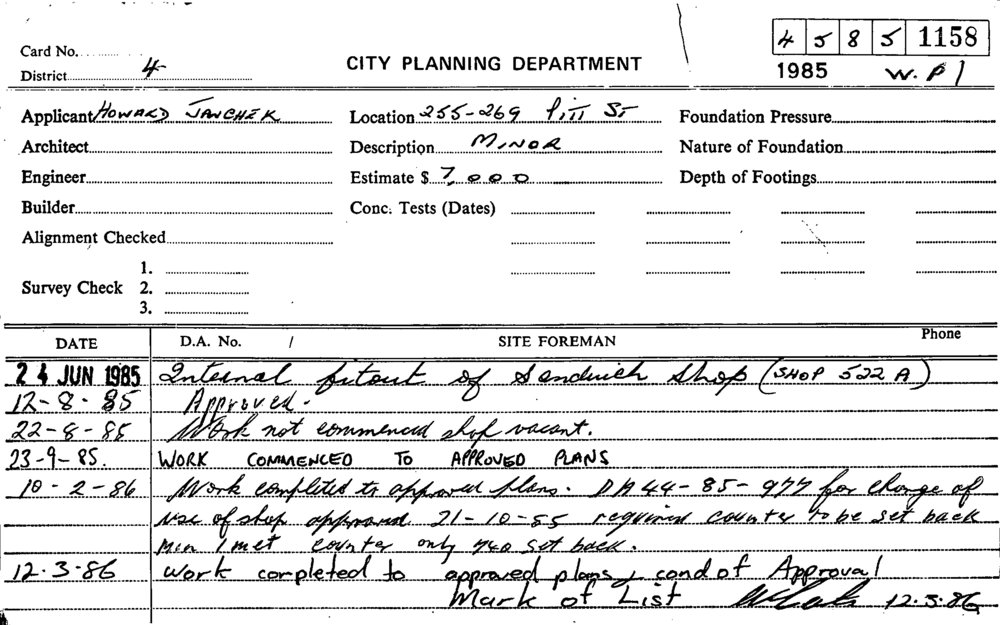 4 5 8 5 1158
Card No.
District 4
CITY PLANNING DEPARTMENT
1985 W.P1
Applicant HOWARD
Location 255-269 PITT ST
Foundation Pressure
Architect
Description MINOR
Nature of Foundation
Engineer
Estimate $ 7,000
Depth of Footings
Builder
Conc. Tests (Dates)
Alignment Checked
Survey Check
1.
2.
3.
DATE D.A. No. / SITE FOREMAN Phone
24 JUN 1985 Internal fitout of Sandwich Shop (SHOP 522 A)
12-8-85 Approved.
22-8-85 Work not commenced shop vacant.
23-9-85. WORK COMMENCED TO APPROVED PLANS
10-2-86 Work completed to approved plans. DA 44-85-977 for change of
use of shop approved 21-10-85 required counter to be set back
Min 1 met counter only 740 set back.
12.3.86 Work completed to approved plans & cond of Approval
Mark of List 12.3.86